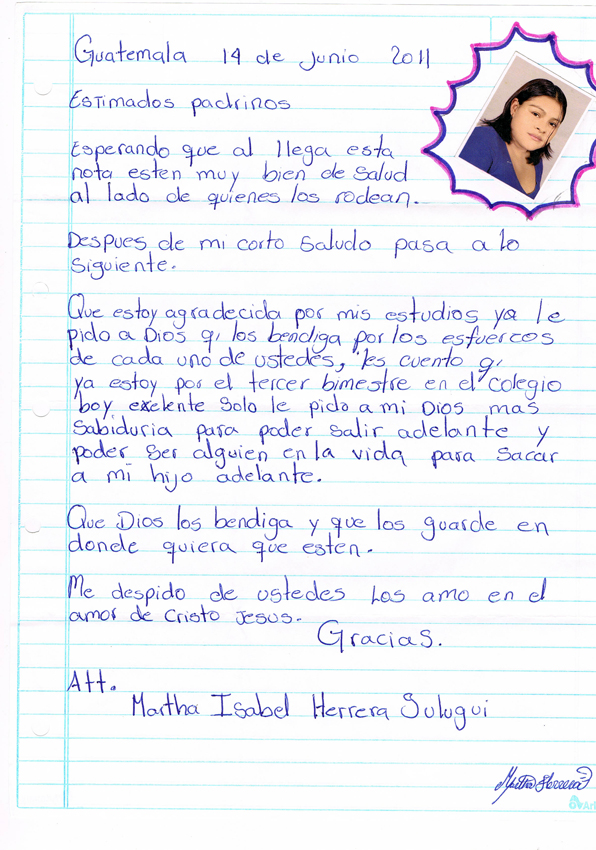 Guatemala 14 de Junio 2011
Estimados padrinos
Esperando que al llega esta
nota esten muy bien de salud
al lado de quienes los rodean.
Despues de mi corto saludo pasa a lo
siguiente.
Que estoy agradecida por mis estudios ya le
pido a Dios q, los bendiga por los esfuercos
de cada uno de ustedes, les cuento q,
ya estoy por el tercer bimestre en el colegio
boy exelente solo le pido a mi Dios mas
sabiduria para poder salir adelante y
poder ser alguien en la vida para sacar
a mi hijo adelante.
Que Dios los bendiga y que los guarde en
donde quiera que esten.
Me despido de ustedes Los amo en el
amor de Cristo Jesus.
Gracias.
Att.
Martha Isabel Herrera Sulugui
Martha Herrera